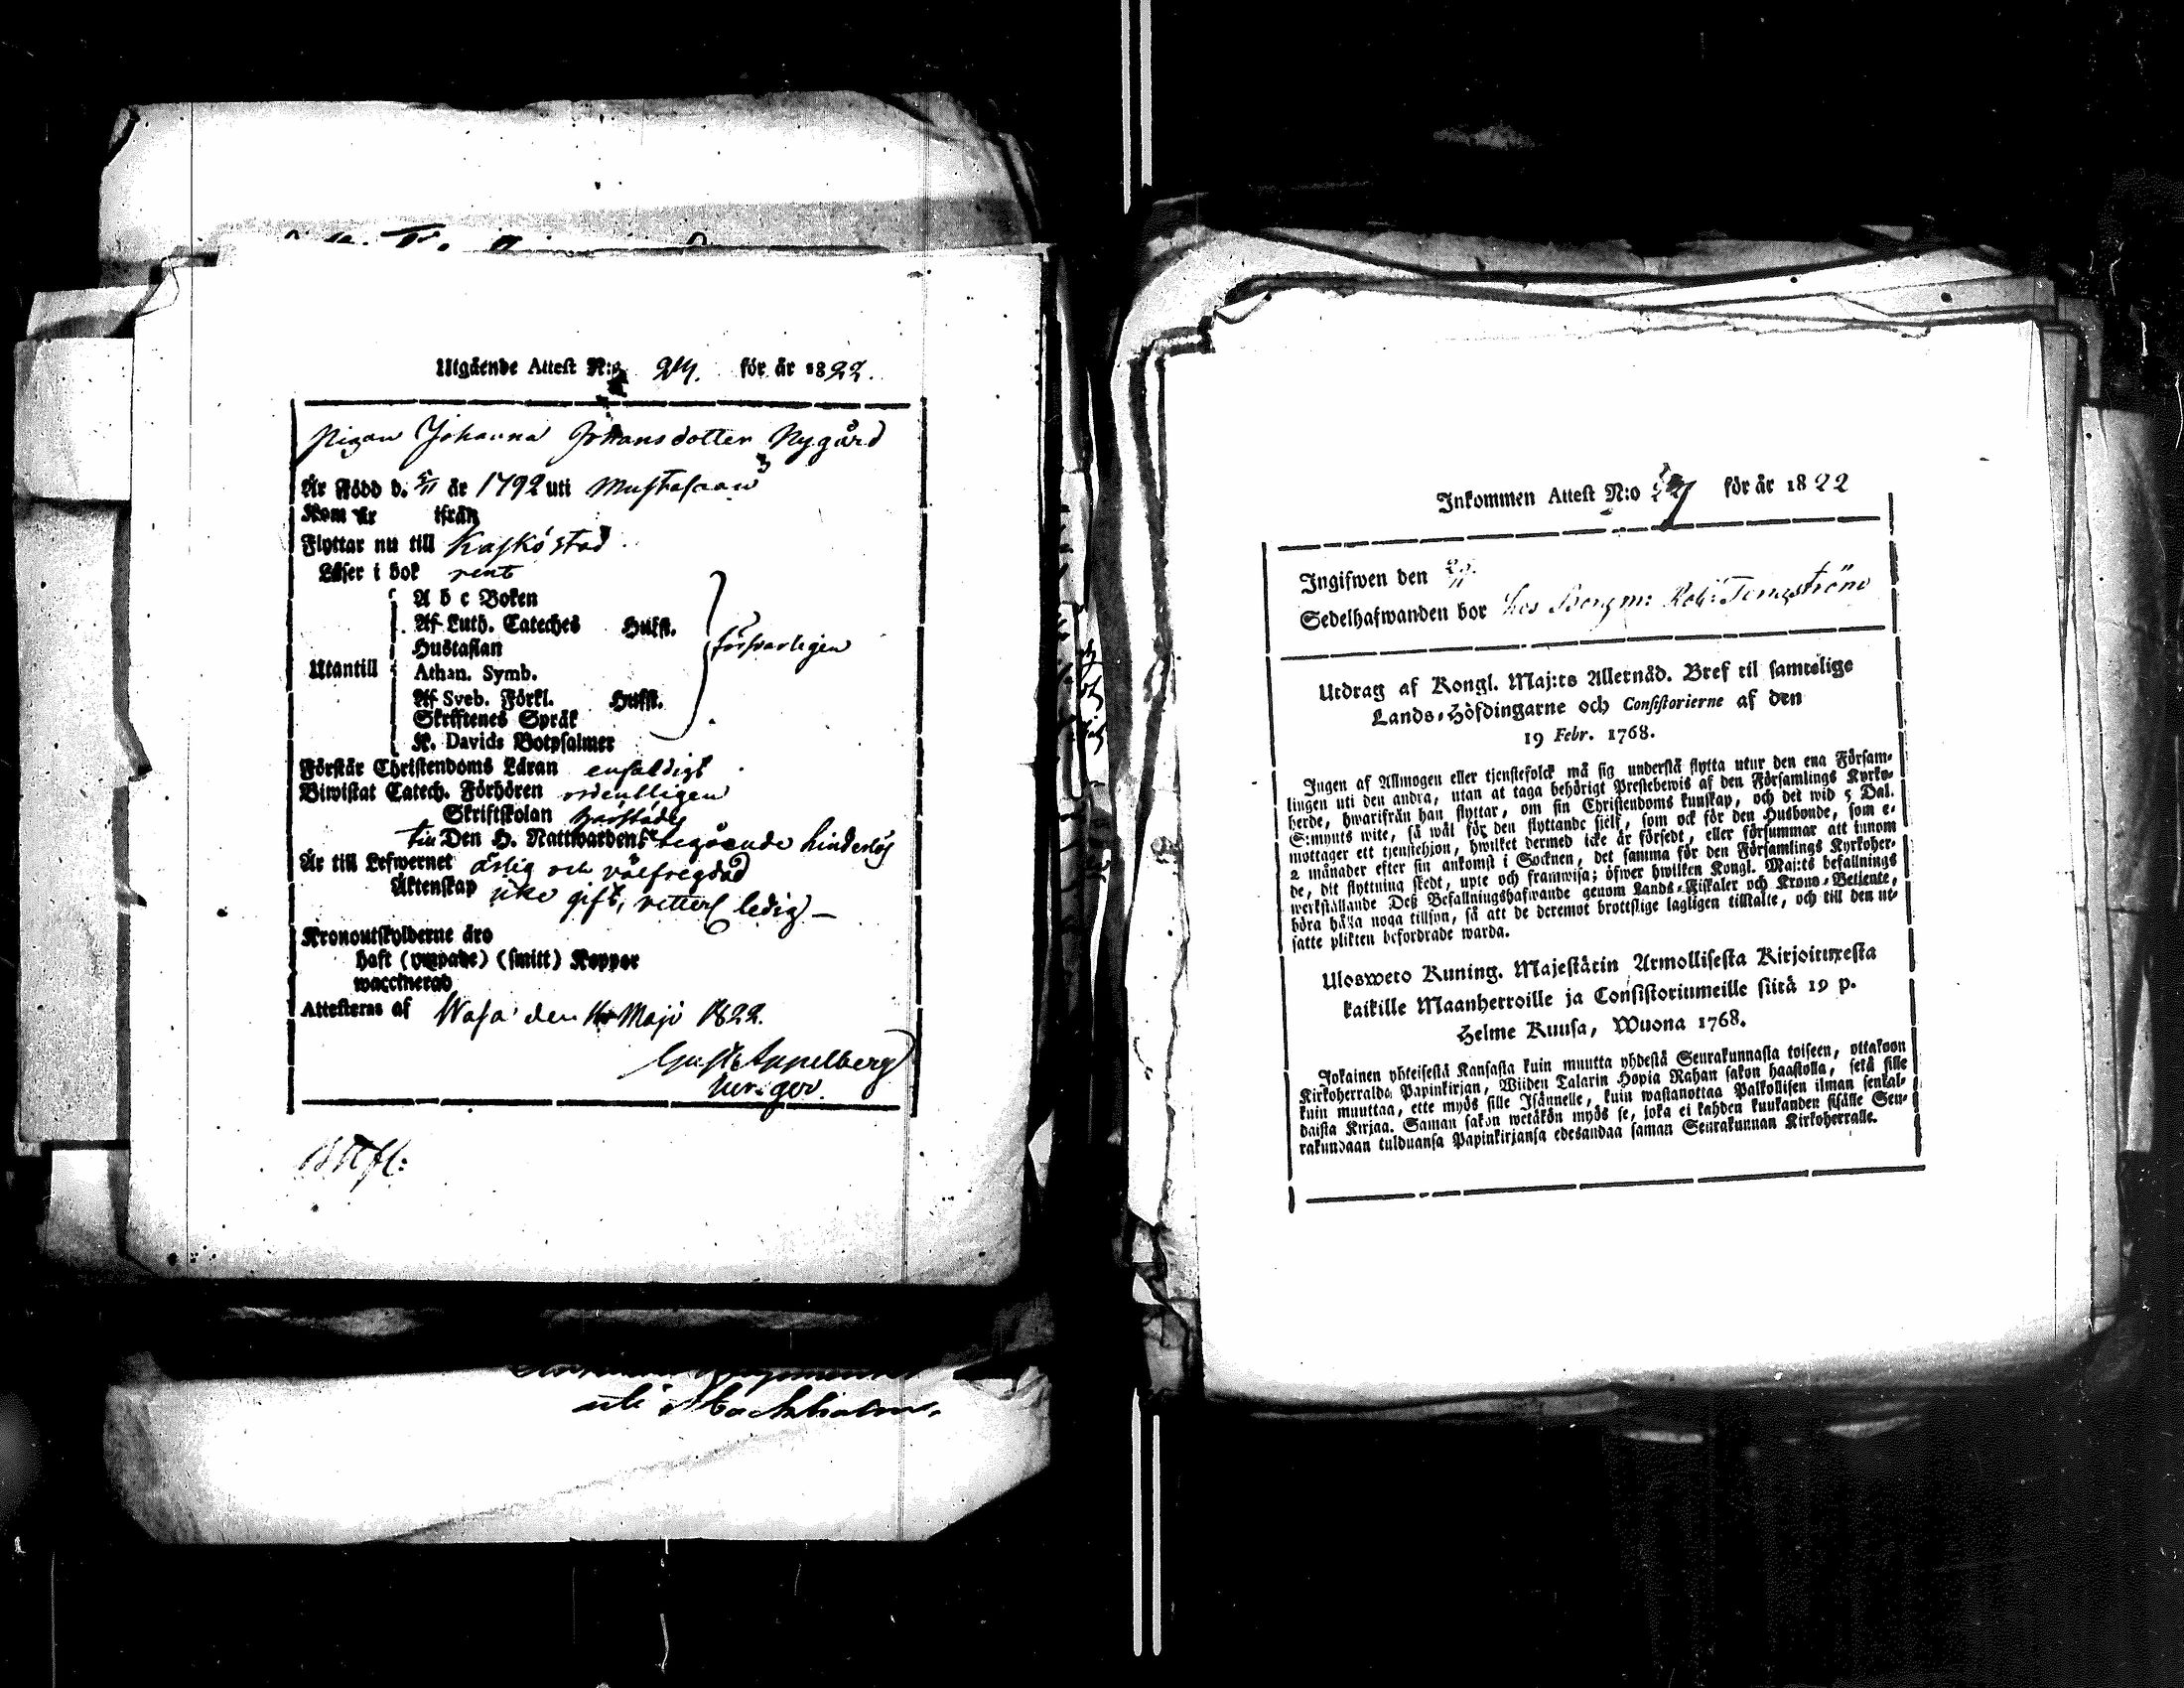 Utgående Attest N:o 24. för år 1822.
Pigan Johanna Johansdotter Nygård
Är Född d. 5/11 år 1792 uti Mustasaari
Kom år ifrån
Flyttar nu till Kaskö stad.
Läser i bok rent
A b c Boken
Af Luth. Cateches Hufst.
Hustaflan
försvarligen
Utantill
Athan. Symb.
Af Sveb. Förkl. Hufst.
Skrifftenes Språk
K. Davids Botpsalmer
Förstår Christendoms Läran enfaldigt
Biwistat Catech. Förhören ordentligen
Skriftskolan
till Den H. Nattwardens begående hinderlös
Är till Lefwernet ärlig och välfregdad
Äktenskap icke gift, ledig –
Kronoutskylderne äro
haft (vapade) (smitt) Koppor
waccinerad
Attesteras af Wasa den Maji 1822.
Gust. Appelberg
Utdrag
Inkommen Attest N:o för år 1822
Ingifwen den
Sedelhafwanden bor hos Borgm: Rob: Tengström
Utdrag af Kongl. Maj:ts Allernåd. Bref til samtelige
Lands-Höfdingarne och Consistorierne af den
19 Febr. 1768.
Ingen af Allmogen eller tjenstefolck må siß understå flytta utur den ena Försam-
lingen uti den andra, utan at taga behörigt Prestebewis af den Församlings Kyrko-
herde, hwarifrån han flyttar, om sin Christendoms kunskap, och det wid 5 Dal.
S:mynts wite, så wäl för den flyttande sjelf, som ock för den Husbonde, som e-
mottager ett tjenstehjon, hwilket dermed icke är försedt, eller försummar att innom
2 månader efter sin ankomst i Socknen, det samma för den Församlings Kyrkoher-
de, dit flyttning skedt, upte och framwisa; öfwer hwilken Kongl. Maj:ts befallnings
werkställande Deß Befallningshafwande genom Lands-Fiskaler och Krono-Betiente,
böra hålla noga tillsyn, så att de deremot brottslige lagligen tilltalte, och till den ut-
satte plikten befordrade warda.
Ulosweto Kuning. Majestätin Armollisesta Kirjoituxesta
kaikille Maanherroille ja Consistoriumeille siitä 19 p.
Helme Kuusa, Wuona 1768.
Jokainen yhteisestä Kansasta kuin muutta yhdestä Seurakunnasta toiseen, ottakoon
Kirkoherralda Papinkirjan, Wiiden Talarin Hopia Rahan sakon haastolla, sekä sille
kuin muuttaa, ette myös sille Isännelle, kuin wastanottaa Palkollisen ilman senkal-
daista Kirjaa. Saman sakon wetäkön myös se, joka ei kahden kuukauden sisälle Seu-
rakundaan tulduansa Papinkirjansa edesandaa saman Seurakunnan Kirkoherralle.